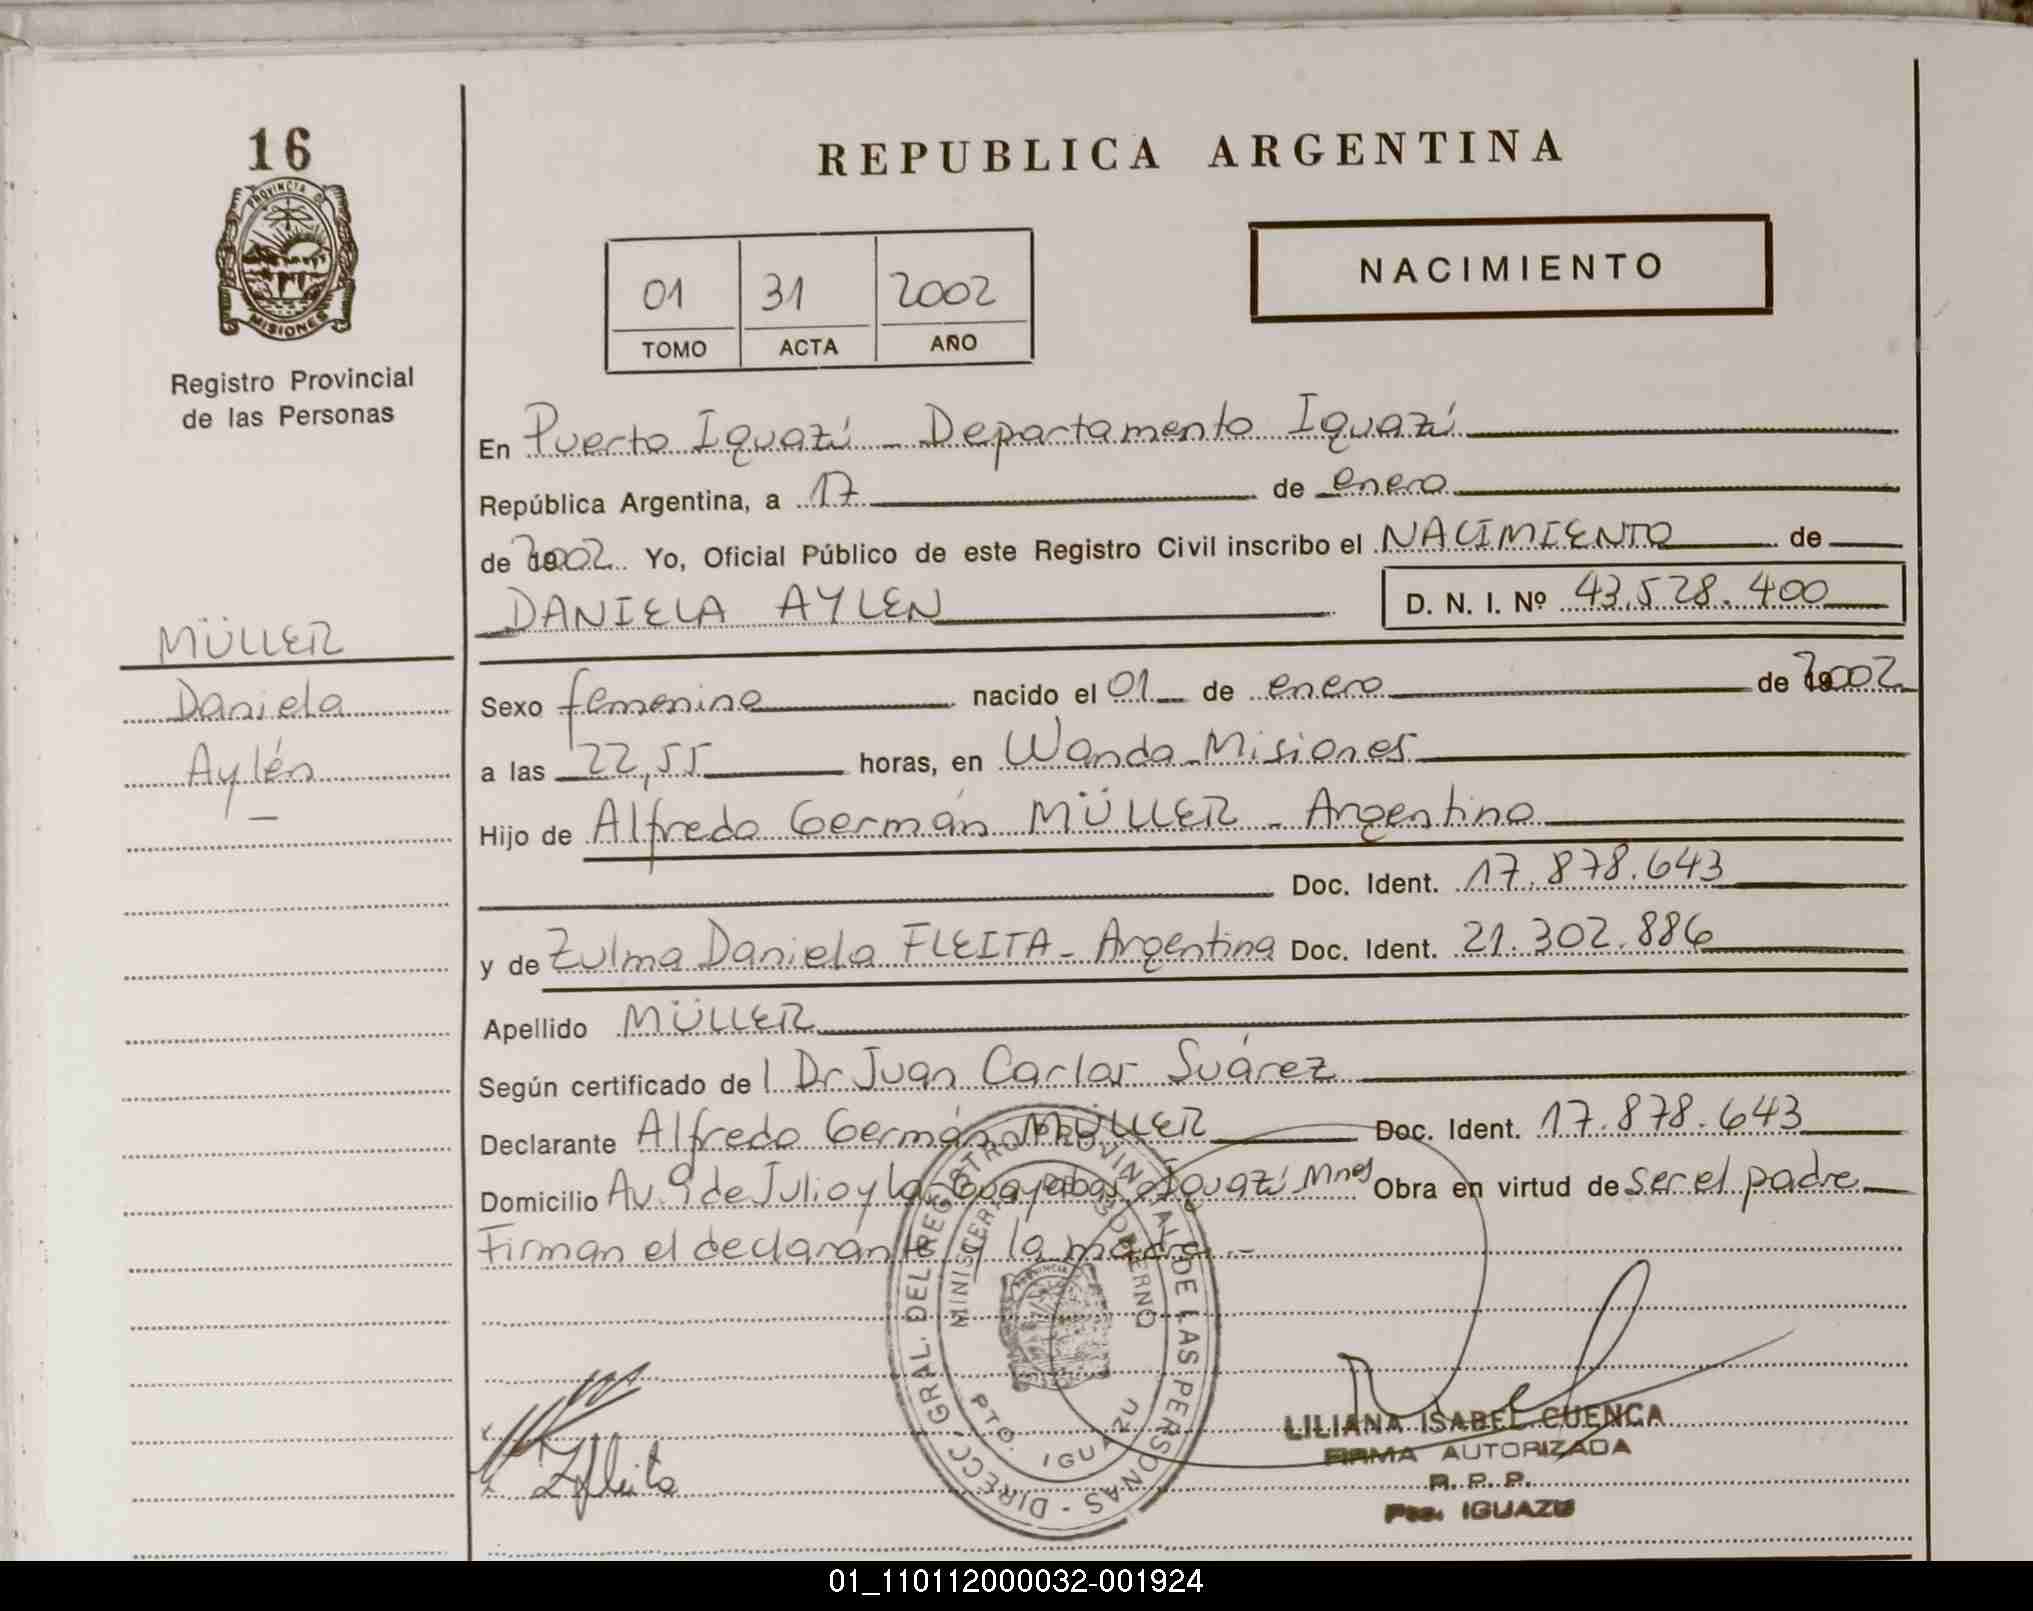 16
PROVINCIA DE
MISIONES
Registro Provincial
de las Personas
MÜLLER
Daniela
Aylén
REPUBLICA ARGENTINA
01 31 2002
TOMO ACTA AÑO
NACIMIENTO
En Puerto Iguazú - Departamento Iguazú
República Argentina, a 17 de enero
de 2002 Yo, Oficial Público de este Registro Civil inscribo el NACIMIENTO de
DANIELA AYLEN D. N. I. Nº 43.528.400
Sexo femenino nacido el 01 de enero de 2002
a las 22,55 horas, en Wanda - Misiones
Hijo de Alfredo Germán MÜLLER - Argentino
Doc. Ident. 17.878.643
y de Zulma Daniela FLEITA - Argentina Doc. Ident. 21.302.886
Apellido MÜLLER
Según certificado de l Dr Juan Carlos Suárez
Declarante Alfredo Germán MÜLLER Doc. Ident. 17.878.643
Domicilio Av. 9 de Julio y las Guayabas Iguazú Mnes Obra en virtud de ser el padre
Firman el declarante y la madre.-
DIRECC. GRAL. DEL REGISTRO PROVINCIAL DE LAS PERSONAS -
MINISTERIO DE GOBIERNO
PTO. IGUAZU
ZFleita
LILIANA ISABEL CUENCA
FIRMA AUTORIZADA
R. P. P.
Pto. IGUAZU
01_110112000032-001924